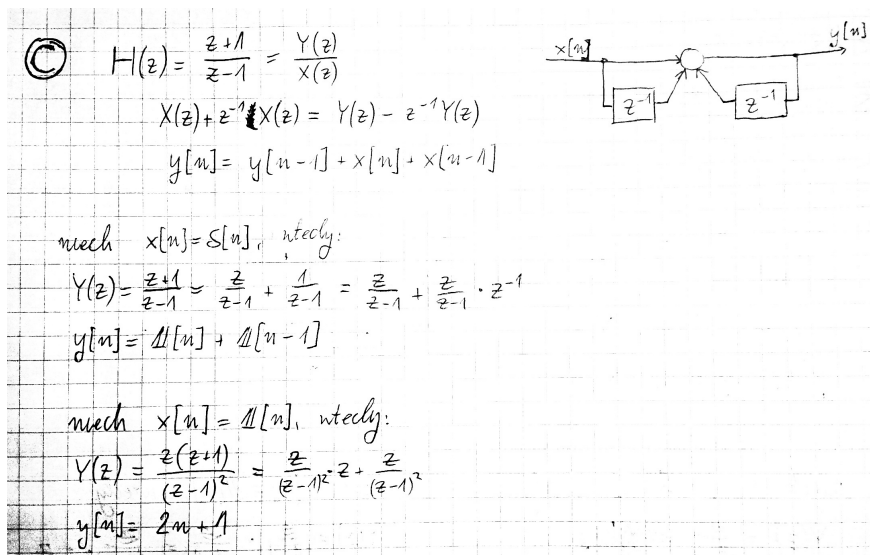 C H(z) = \frac{z+1}{z-1} = \frac{Y(z)}{X(z)}
X(z) + z^{-1} X(z) = Y(z) - z^{-1} Y(z)
y[n] = y[n-1] + x[n] + x[n-1]
x[n]
y[n]
z^{-1}
z^{-1}
niech x[n] = δ[n], wtedy:
Y(z) = \frac{z+1}{z-1} = \frac{z}{z-1} + \frac{1}{z-1} = \frac{z}{z-1} + \frac{z}{z-1} · z^{-1}
y[n] = 𝟙[n] + 𝟙[n-1]
niech x[n] = 𝟙[n], wtedy:
Y(z) = \frac{z(z+1)}{(z-1)^2} = \frac{z}{(z-1)^2} · z + \frac{z}{(z-1)^2}
y[n] = 2n + 1